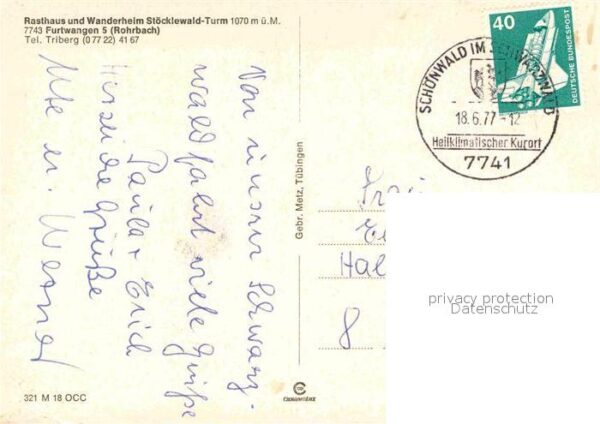 Rasthaus und Wanderheim Stöcklewald-Turm 1070 m ü. M.
7743 Furtwangen 5 (Rohrbach)
Tel. Triberg (0 77 22) 41 67
Von unserer Schwarz-
waldfahrt viele Grüße
Paula + Erich
Herzliche Grüße
Ute u. Werner
Gebr. Metz, Tübingen
321 M 18 OCC
40
DEUTSCHE BUNDESPOST
SCHÖNWALD IM SCHWARZWALD
18.6.77-12
Heilklimatischer Kurort
7741
8
privacy protection
Datenschutz